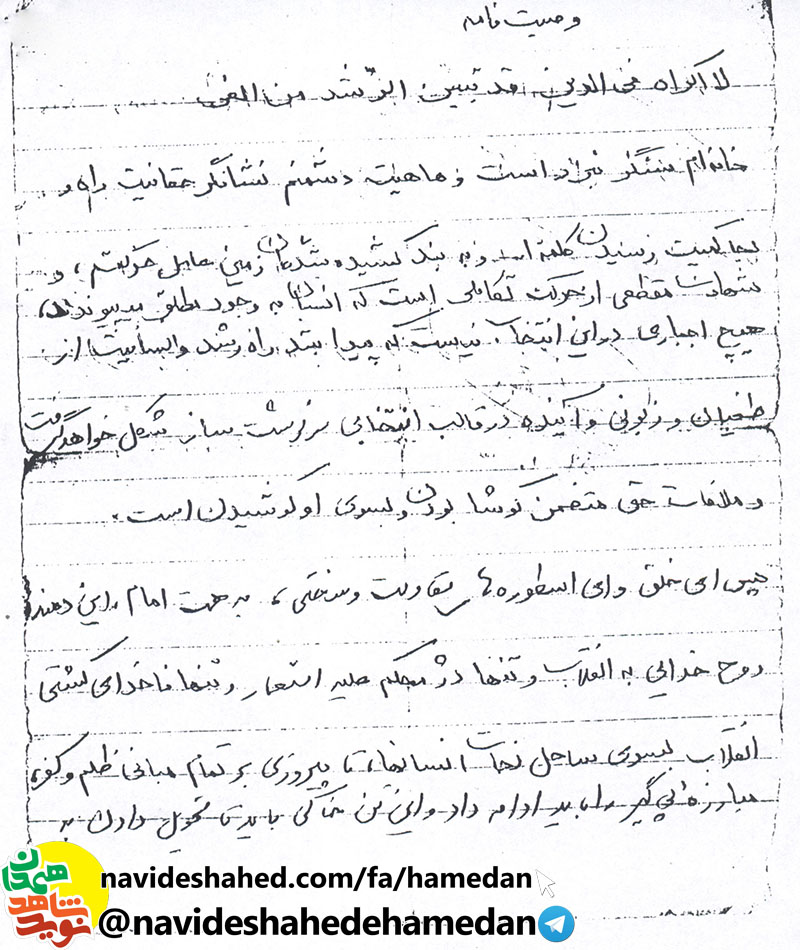 وصیت نامه
لا اکراه فی الدین قد تبین الرشد من الغی
خانه‌ام سنگر نبرد است و ماهیت دشمنم نشانگر حقانیت راه و
بحاکمیت رسیدن کلمه اله و به بند کشیده شدگان زمین عامل حرکتم ، و
شهادت مقطعی از حرکت تکاملی است که انسان به وجود مطلق بپیوندد،
هیچ اجباری در این انتخاب نیست که پیدا شد راه رشد وانسانیت از
طغیان و زبونی و آینده در قالب انتخابی سرنوشت ساز شکل خواهد گرفت
و ملاقات حق متضمن کوشا بودن و بسوی او کوشیدن است .
پس ای خلق وای اسطوره های مقاومت وسختی ، به همت امام ، این دهنده
روح خدایی به انقلاب و تنها دژ محکم علیه استعمار و تنها ناخدای کشتی
انقلاب بسوی ساحل نجات انسانها، تا پیروزی بر تمام مبانی ظلم و کفر،
مبارزه پی گیر را باید ادامه داد و این تن خاکی باید تا تحویل دادن به
نوید شاهد همدان
navideshahed.com/fa/hamedan
@navideshahedehamedan